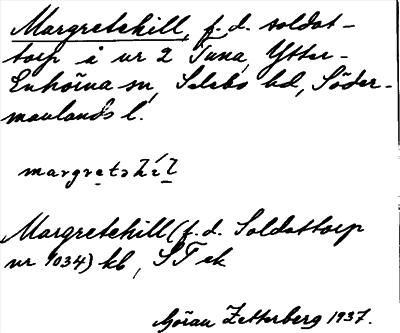 Margretehill, f. d. soldat-
torp å nr 2 Tuna, Ytter-
Enhörna sn, Selebo hd, Söder-
manlands l.
margretəhíl
Margretehill (f. d. Soldattorp
nr 1034) kb, ST ek
Göran Zetterberg 1937.